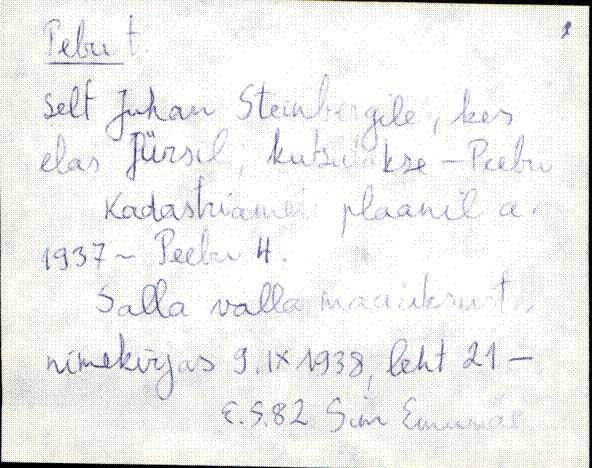 Peebu t.
selt Juhan Steinbergile, kes
elas Jürsil, kutsutakse – Peebu
Kadastriameti plaanil a.
1937 ~ Peebu H.
Salla valla maaüksuste
nimekirjas 9. IX 1938, leht 21 –
E.S.82 Sim Emumäe